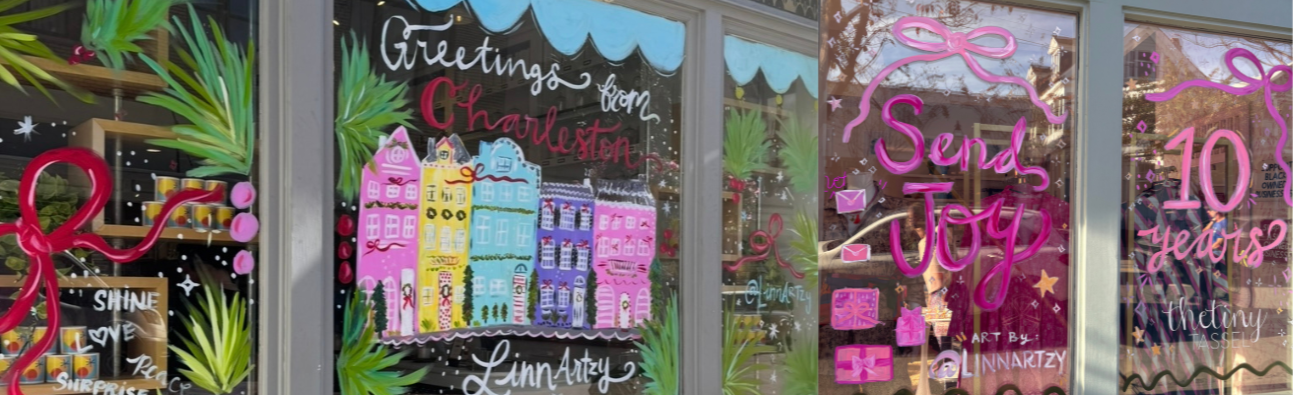 SHINE
LOVE
Peace
SURPRISE
Greetings from
Charleston
LinnArtzy
@LinnArtzy
Send
Joy
ART BY:
@LINNARTZY
10
years
thetiny
TASSEL